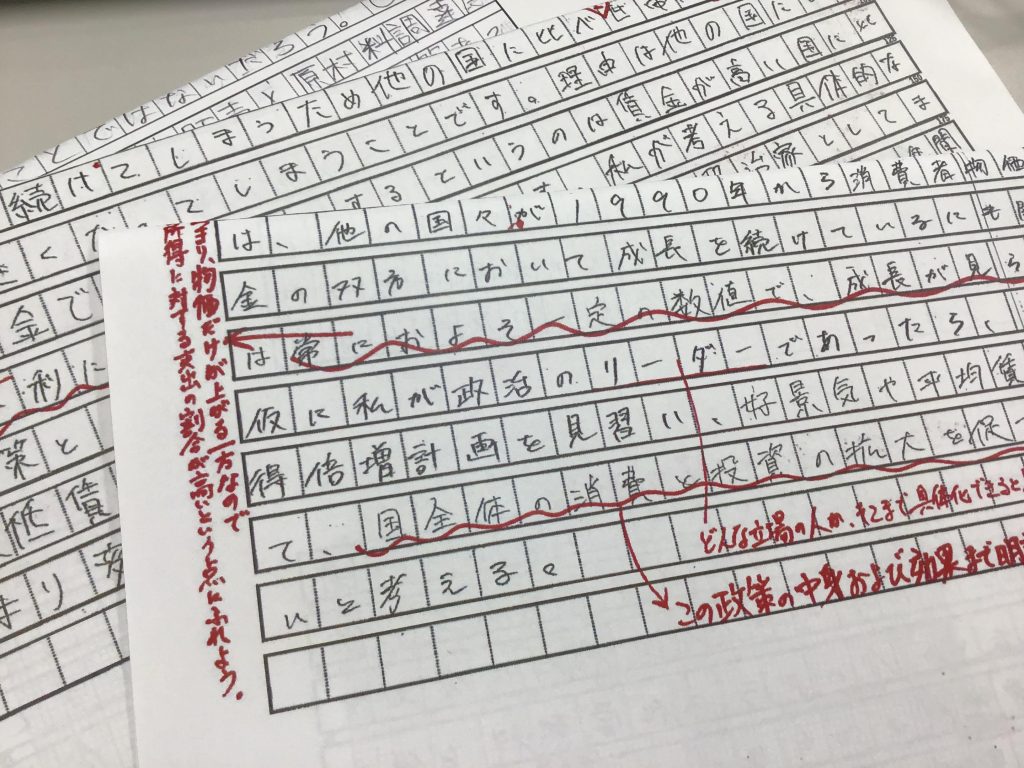 ではないだろう。
原材料調
続けてしまうため他の国に比べ
てしまうことです。理由は他の国に
するというのは賃金が高い国に比
私が考える具体的な
治家としてま
金で
利に
策と
は、他の国々が1990年から消費者物価
金の双方において成長を続けているにも
は常におよそ一定の数値で、成長が見ら
仮に私が政治のリーダーであったら、
得倍増計画を見習い、好景気や平均賃
て、国全体の消費と投資の拡大を促
いと考える。
つまり、物価だけが上がる一方なので
所得に対する支出の割合が高いという点にふれよう。
どんな立場の人か、そこまで具体化できると
この政策の中身および効果まで明